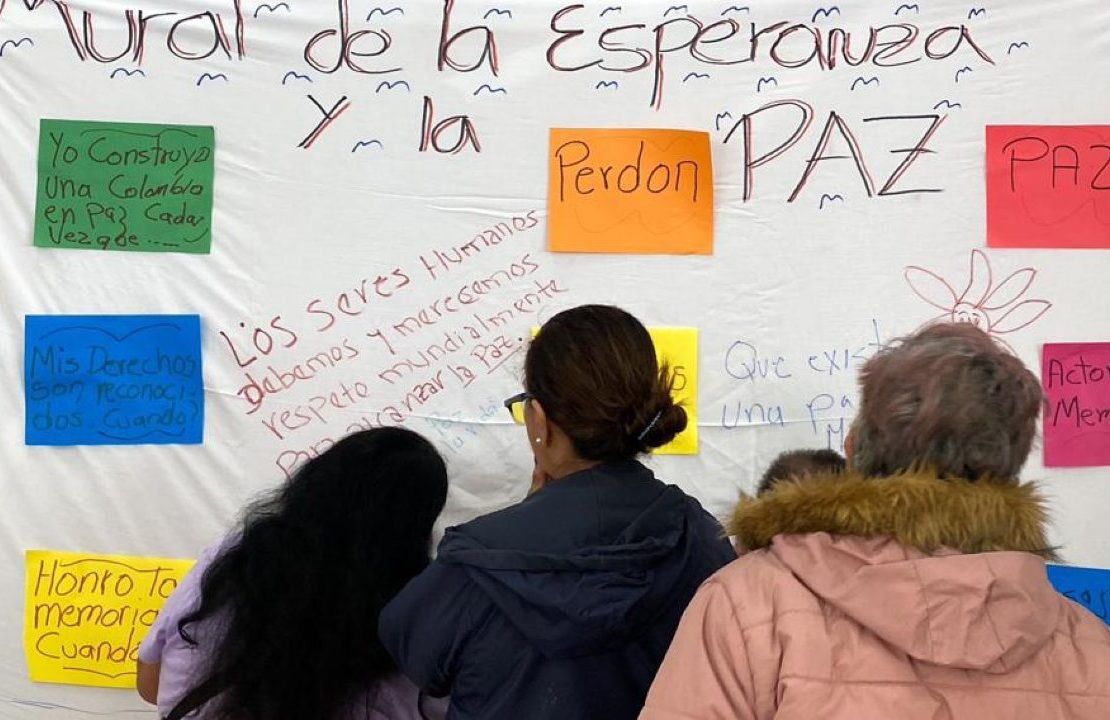 Mural de la Esperanza
Y la PAZ
Yo Construyo
una Colombia
en Paz Cada
Vez que....
Perdon
PAZ
Los seres Humanos
debemos y merecemos
respeto mundialmente
Para alcanzar la Paz.
Mis Derechos
son reconoci-
dos. Cuando?
Que exist
una pa
Acto
Mem
Honro To
memoria
Cuando